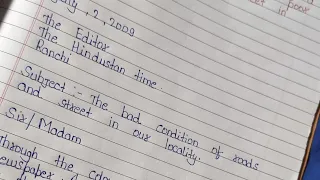 , 2, 2009
The Editor
The Hindustan time.
Ranchi
Subject :- The bad condition of roads
and street in our locality.
Six/Madam
Through the